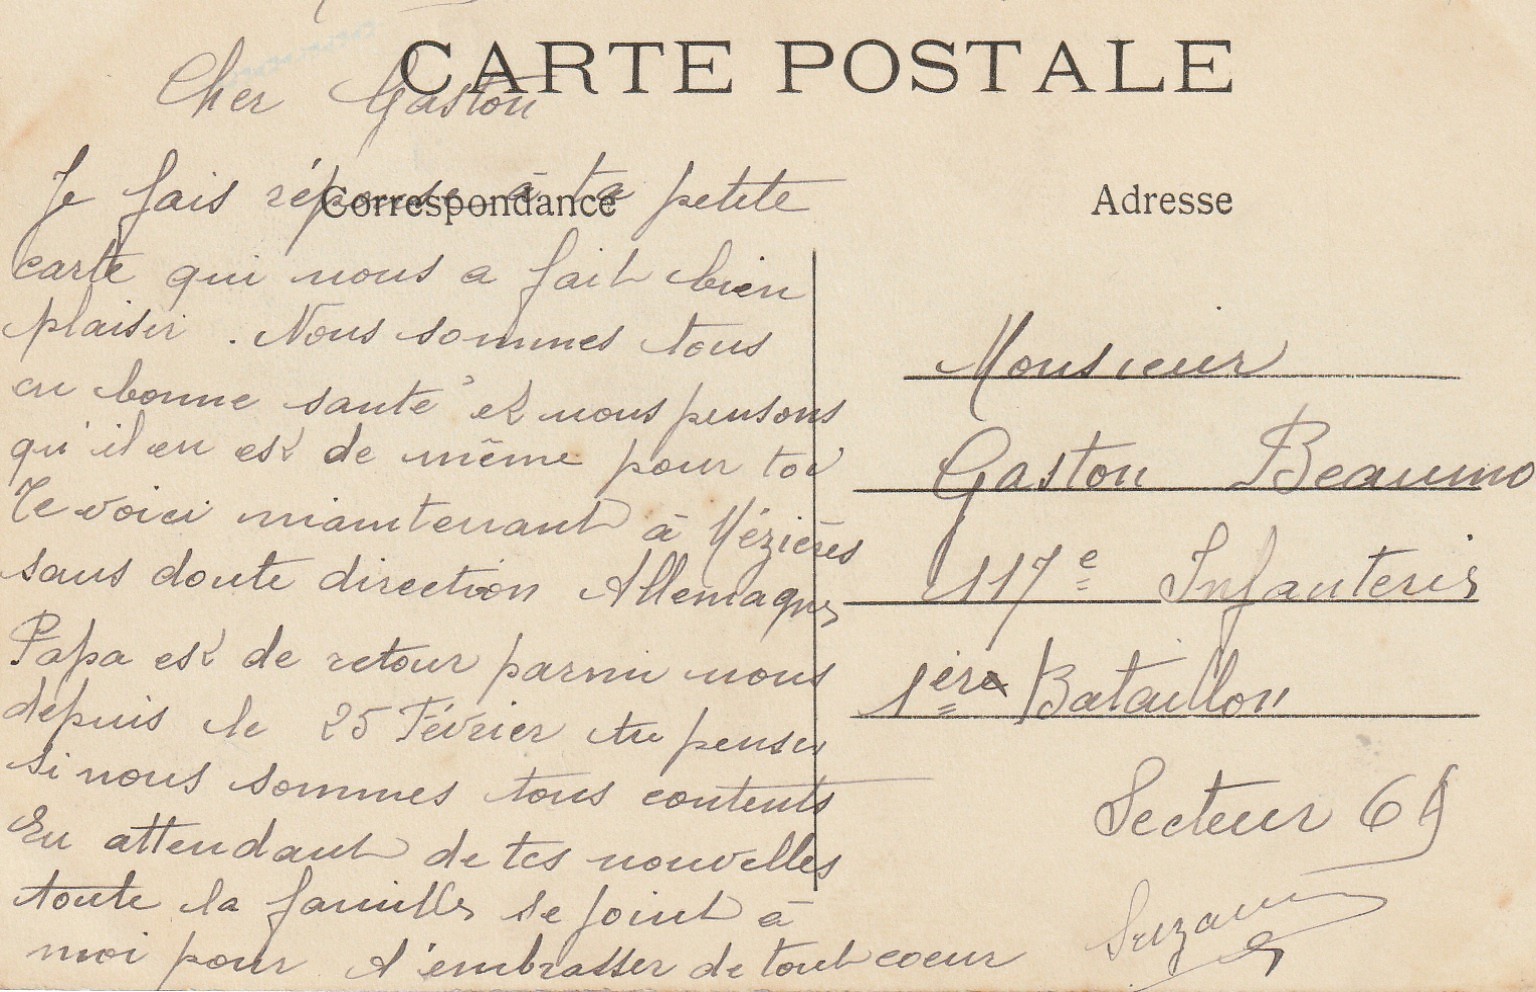 CARTE POSTALE
Cher Gaston
Correspondance
Je fais réponse à ta petite
carte qui nous a fait bien
plaisir . Nous sommes tous
en bonne santé et nous pensons
qu'il en est de même pour toi
Te voici maintenant à Mézières
sans doute direction Allemagne
Papa est de retour parmi nous
depuis le 25 Février tu penses
si nous sommes tous contents
En attendant de tes nouvelles
toute la famille se joint à
moi pour t'embrasser de tout coeur
Suzanne
Adresse
Monsieur
Gaston Beaumo
117e Infanterie
1ère Bataillon
Secteur